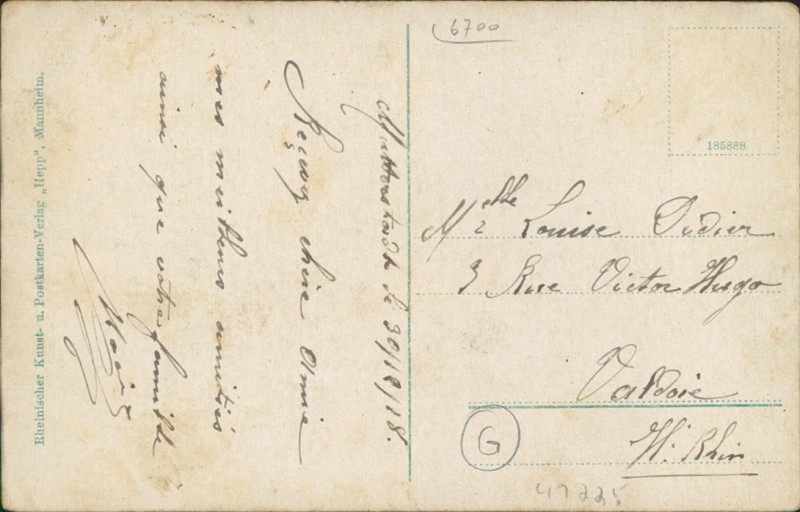 Mutterstadt le 30/12/18.
Recevez chère Amie
mes meilleurs amitiés
ainsi que votre famille
Rheinischer Kunst- u. Postkarten-Verlag „Hepp", Mannheim.
6700
185888
Melle Louise Didier
3 Rue Victor Hugo
Valdoie
Ht. Rhin
G
47225